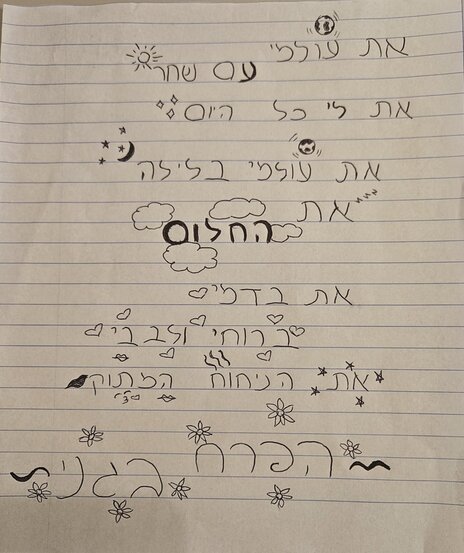 את עולמי
עם שחר
את לי כל היום
את עולמי בלילה
את
החלום
את בדמי
ברוחי ולבבי
את הניחוח המתוק
הפרח בגני